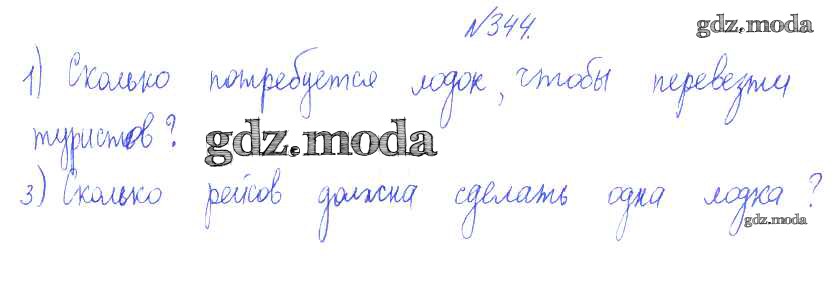 №344.
gdz.moda
1) Сколько потребуется лодок, чтобы перевезти
туристов?
gdz.moda
3) Сколько рейсов должна сделать одна лодка?
gdz.moda